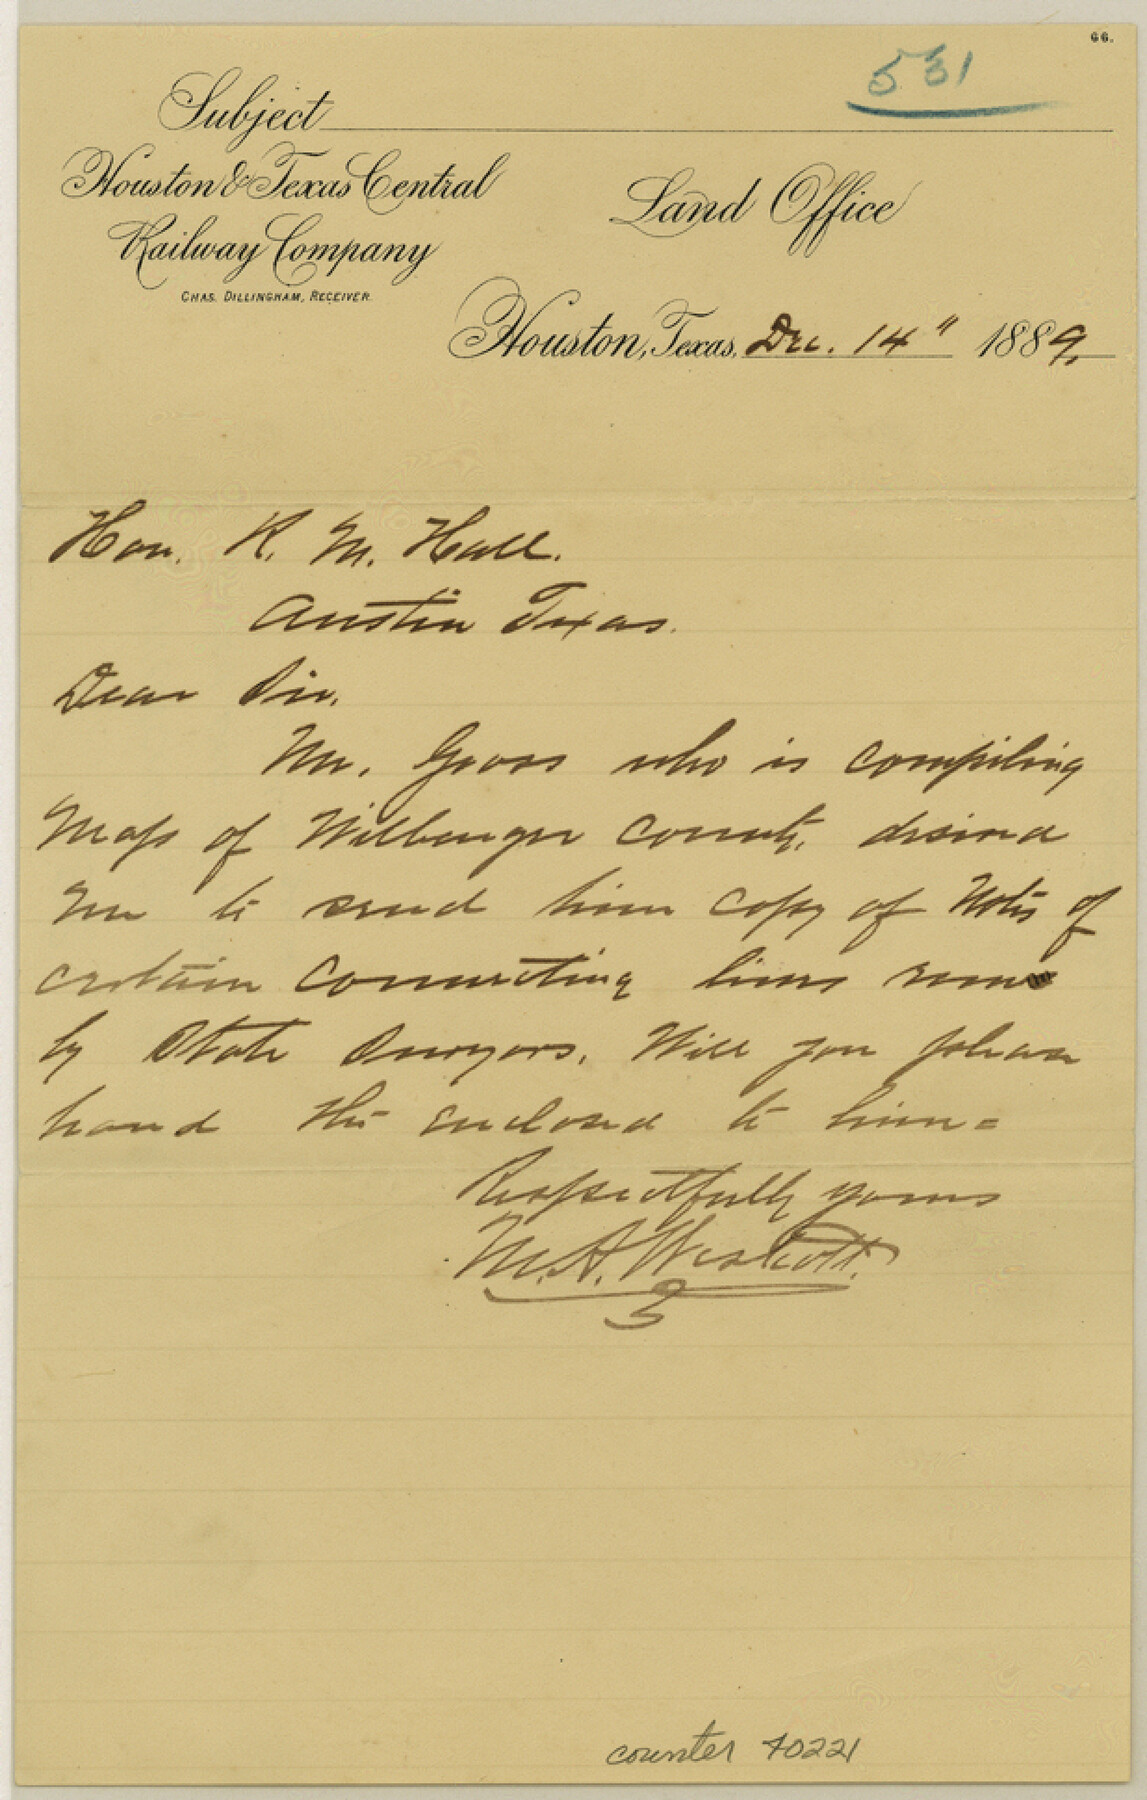 66.
531
Subject
Houston & Texas Central
Railway Company
CHAS. DILLINGHAM, RECEIVER.
Land Office
Houston, Texas, Dec. 14" 1889.
Hon. R. M. Hall.
Austin Texas.
Dear Sir.
Mr. Gross who is compiling
Map of Wilbarger County, desired
me to send him copy of Notes of
certain connecting lines
by State Surveyors. Will you please
hand the enclosed to him =
Respectfully yours
M. A. Westcott.
counter 40221